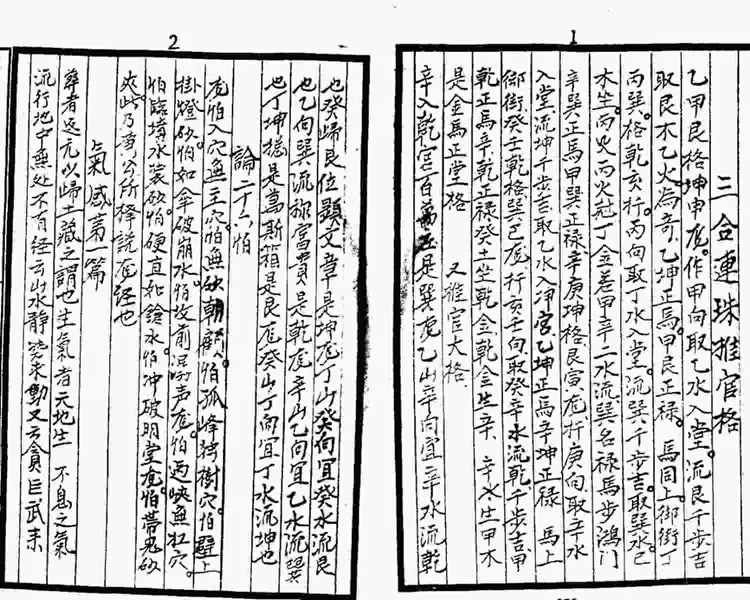 1
三合連珠推官格
乙甲艮格坤申龙。作甲向取乙水入堂。流艮千步吉
取艮木乙火為奇。乙坤正馬。甲艮正禄。馬同上御街丁
丙巽。格乾亥行。丙向取丁水入堂。流巽千步吉。取巽水巳
木生丙火丙火起丁金差甲辛二水流巽名禄馬步鴻门
辛巽正馬甲巽正禄辛庚坤格艮寅龙行庚向取辛水
入堂流坤千步吉取乙水入淨宮乙坤正馬辛坤正禄 馬上
御街癸壬乾格巽巳龙行亥壬向取癸辛水流乾千步吉甲
乾正馬辛乾正禄癸土生乾金乾金生辛、辛水生甲木
是金馬正堂格 又推官大格
辛入乾宮百萬 是巽龙乙山辛向宜辛水流乾
2
也癸歸艮位顕文章是坤龙丁山癸向宜癸水流艮
也乙向巽流旅富貴是乾龙辛山乙向宜乙水流巽
也丁坤 是萬斯箱是艮龙癸山丁向宜丁水流坤也
論二十六怕
龙怕入穴魚主穴。怕無砂朝 怕孤峰独樹穴怕壁上
掛燈砂怕如拿破崩水怕坟前 龙。怕 峡魚扛穴。
怕臨墳水裳砂怕硬直如鎗水怕冲破明堂龙怕帶鬼砂
此乃黄公所择説龙經也
氣感第一篇
葬者返元以歸土藏之謂也生氣者天地生 不息之氣
流行地中無处不有経云山水静 求動又云貪巨武